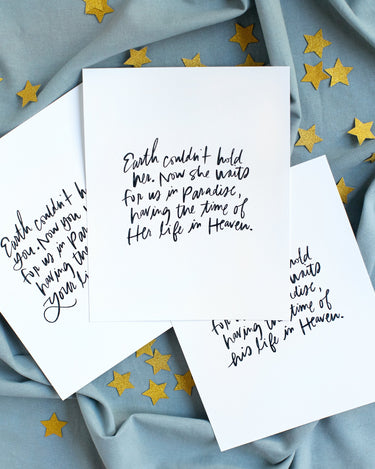 Earth couldn't hold
her. Now she waits
for us in Paradise,
having the time of
Her life in Heaven.
Earth couldn't h
you. Now you
for us in Par
having the
your li
old
aits
adise,
having the time of
his life in Heaven.